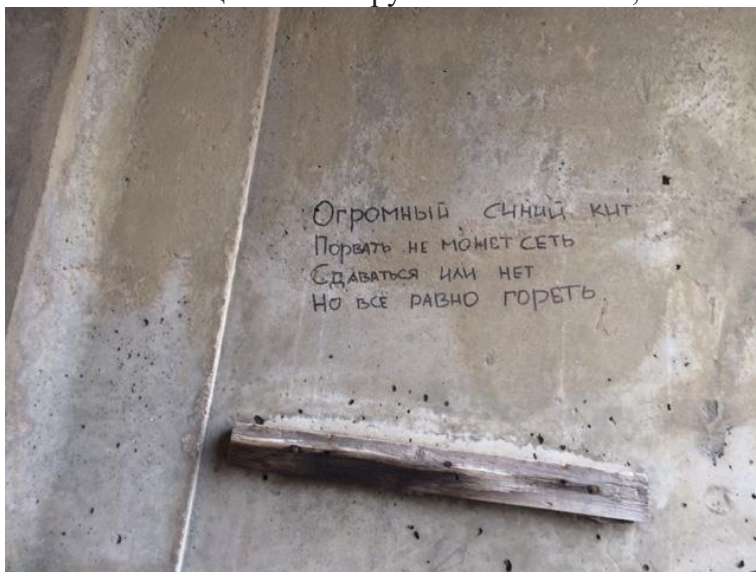 Огромный синий кит
Порвать не может сеть
Сдаваться или нет
Но всё равно гореть